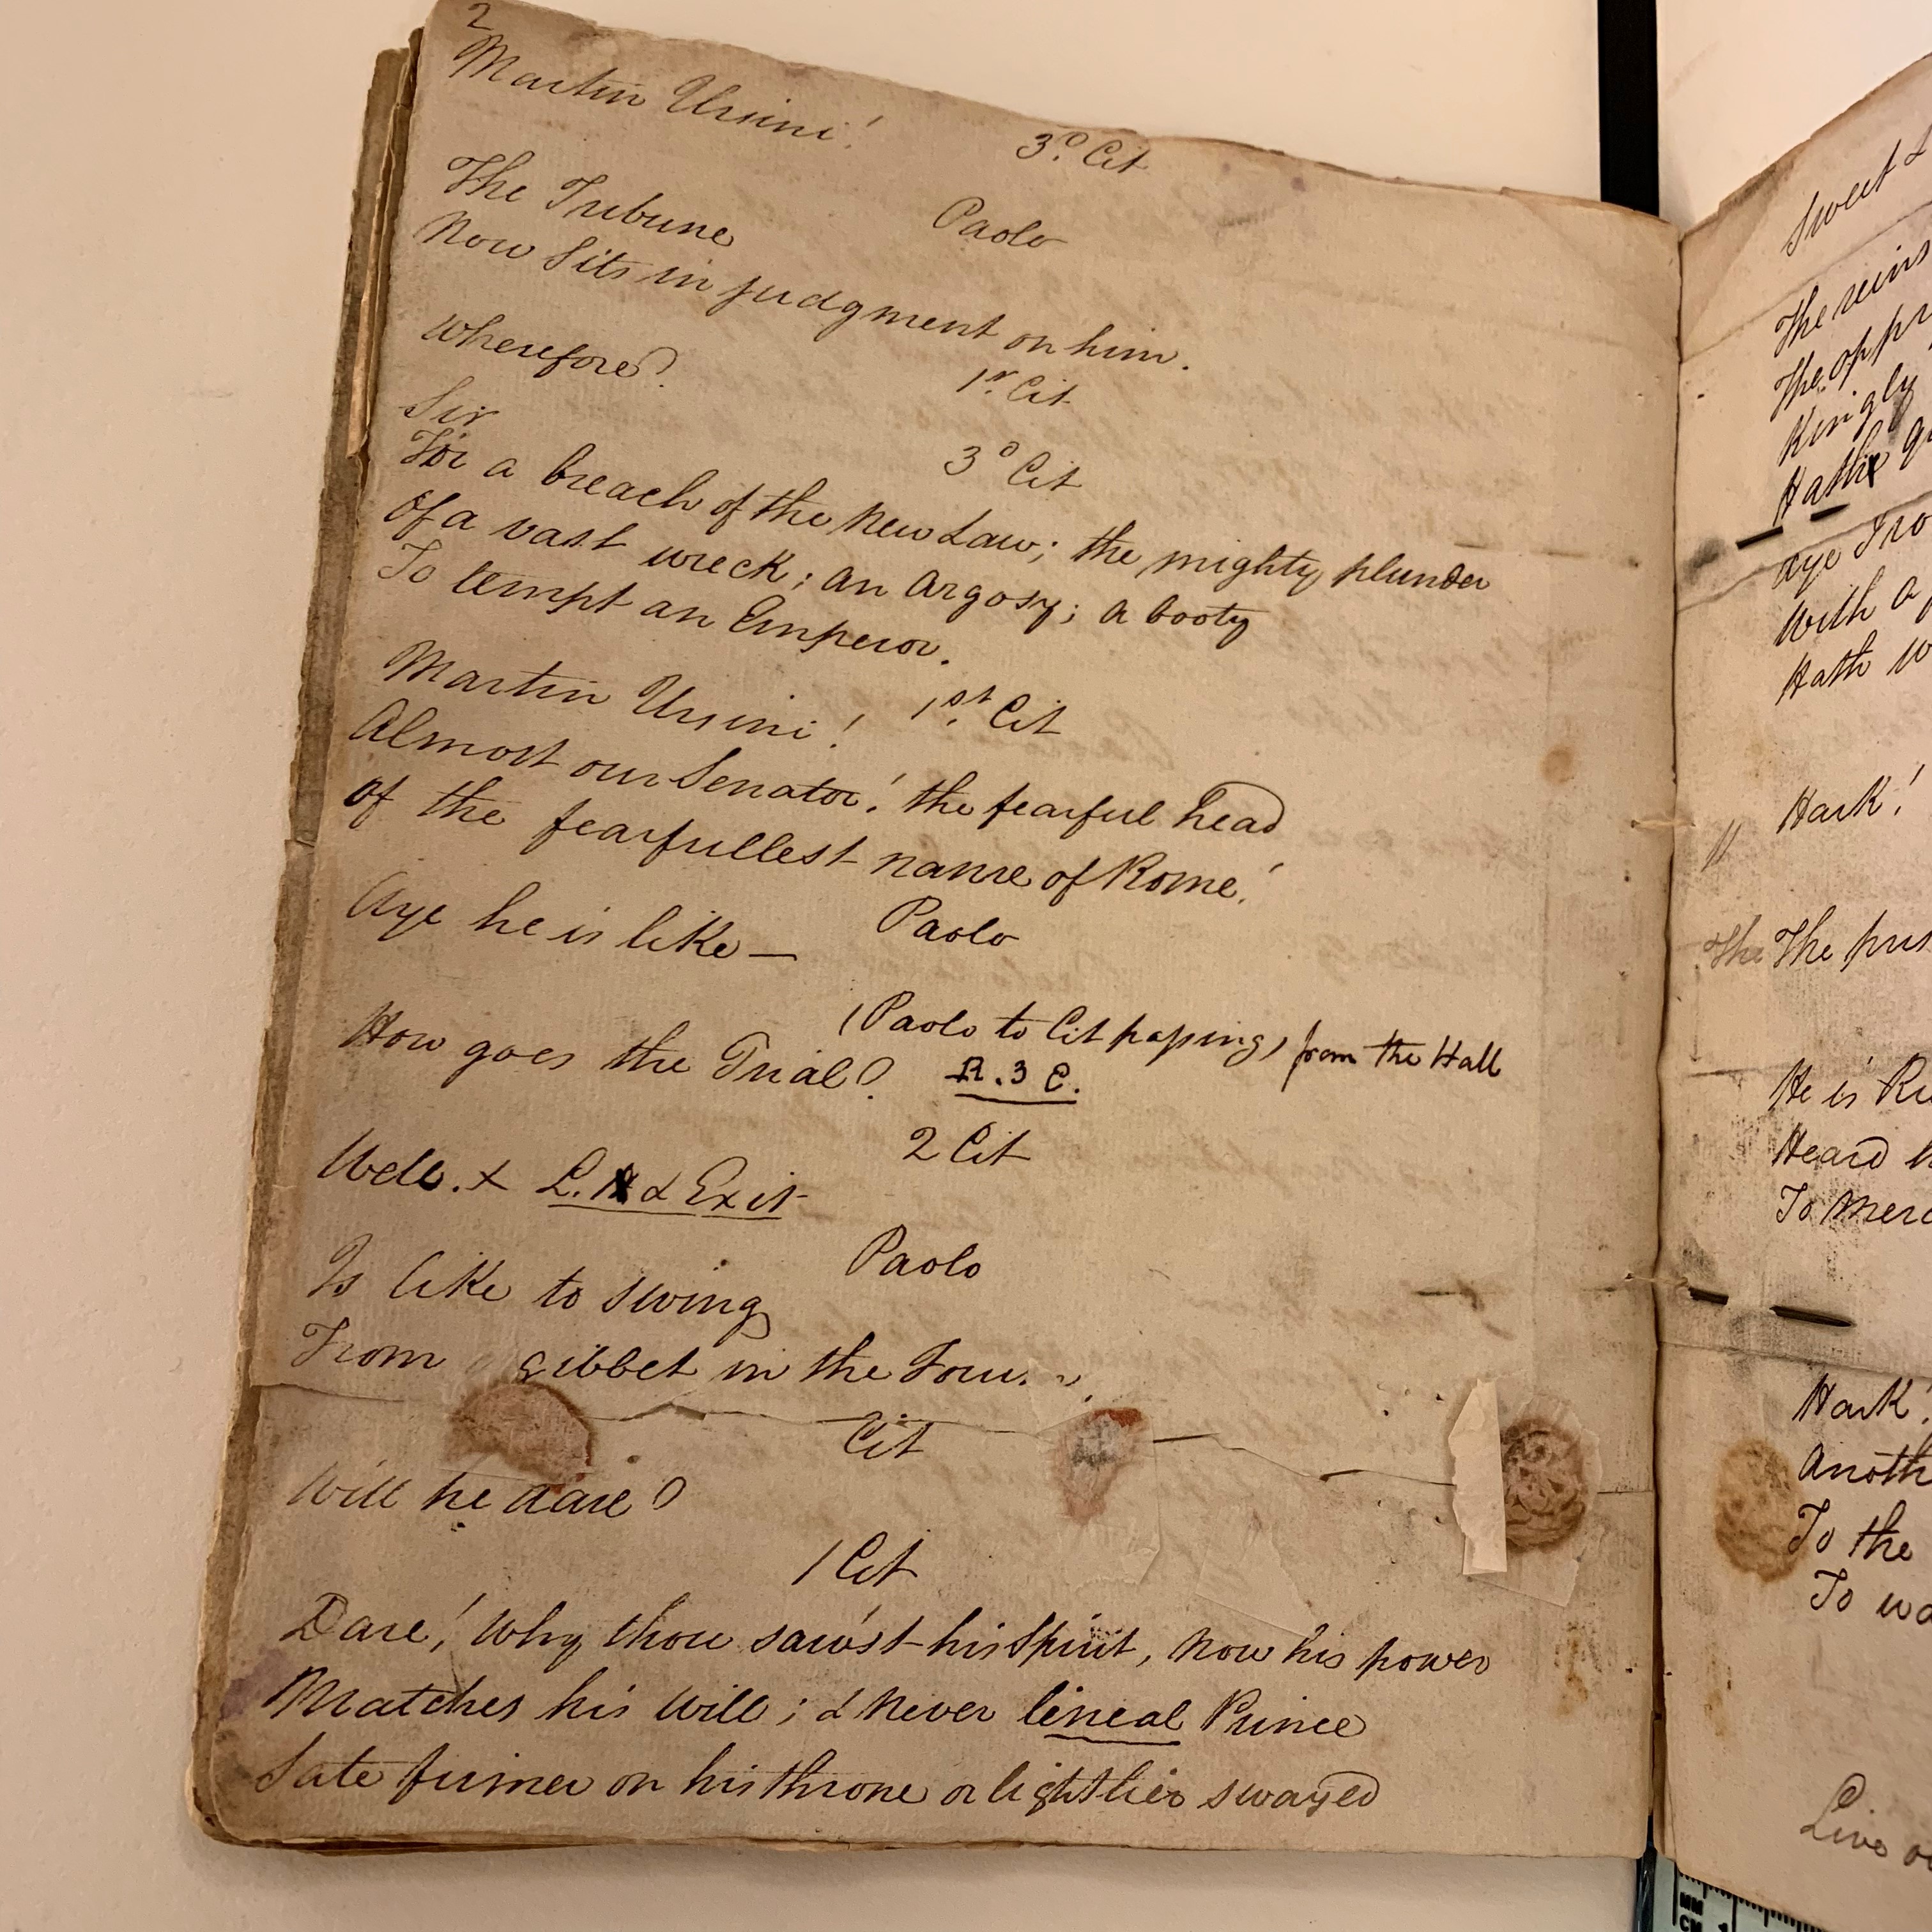 2
Martin Ursini!
3.d Cit
The Tribune
Paolo
Now Sits in judgment on him.
Wherefore?
1.r Cit
Sir
3d Cit
For a breach of the New Law; the mighty plunder
Of a vast wreck; an Argosy; a booty
To tempt an Emperor.
1.st Cit
Martin Ursini!
Almost our Senator! the fearful head
of the fearfullest name of Rome!
Paolo
Aye he is like —
(Paolo to Cit passing, from the Hall
How goes the Trial? R.3 E.
2 Cit
Well. + L. & Exit
Paolo
Is like to swing
From gibbet in the
Cit
Will he dare?
1 Cit
Dare! Why thou saw'st his Spirit, Now his power
Matches his will; & Never lineal Prince
Sate firmer on his throne or lightlier swayed
Sweet
The reins
The
Kingly
Hath
Aye
With a
Hath
Hark!
The The
He is
Heard
To
Hark!
To the
To
Live
MM
CM
1